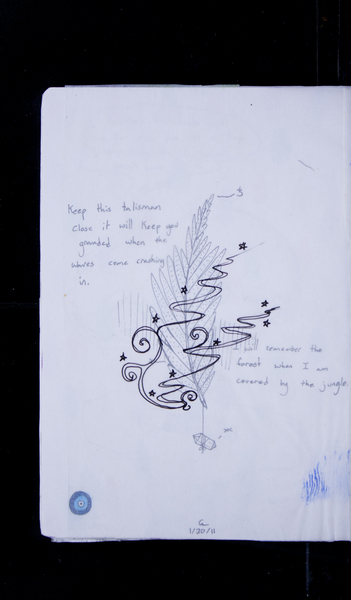 Keep this talisman
close it will keep you
grounded when the
waves come crashing
in.
I will remember the
forest when I am
covered by the jungle.
1/30/11